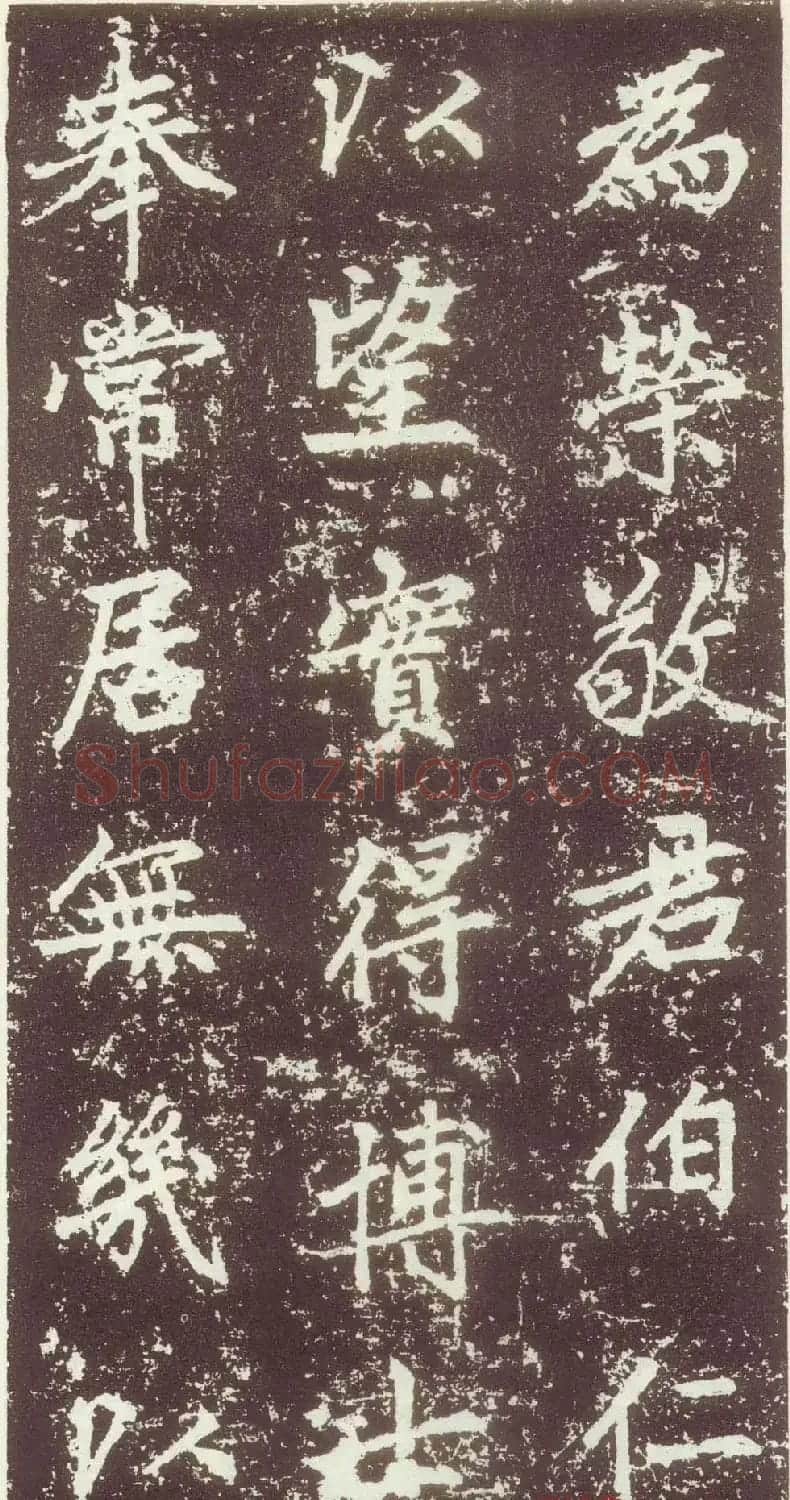 為榮敬君伯仁
以望實得博士
奉常居無幾以
Shufaziliao.COM